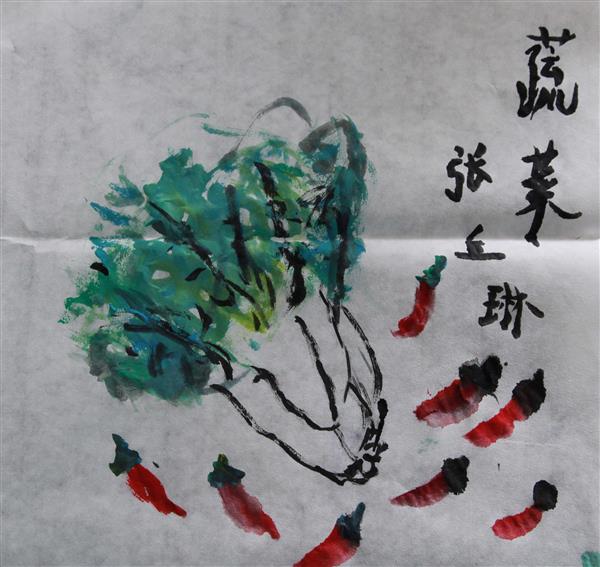 蔬菜
张丘琳